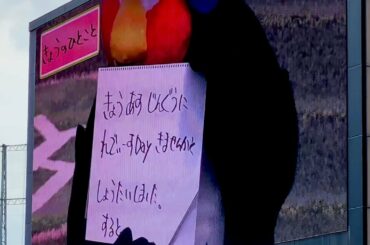 きょうのひとこと
きょうあすじんぐうに
れでぃーすDayきませんかと
しょうたいしました。
すると